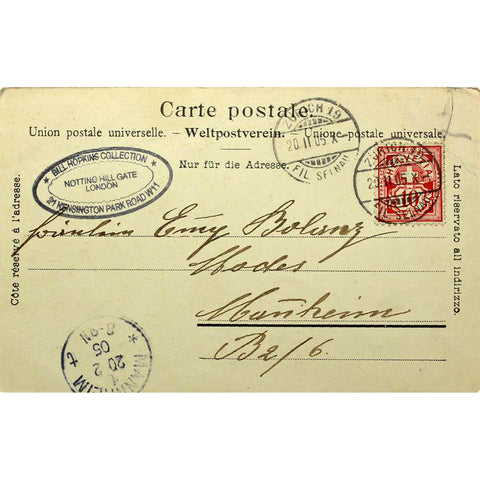 Carte postale.
Union postale universelle. – Weltpostverein. – Unione postale universale.
Nur für die Adresse.
Côte réservé à l'adresse.
Lato riservato all indirizzo.
BILL HOPKINS COLLECTION
NOTTING HILL GATE
LONDON
21 KENSINGTON PARK ROAD W11
ZÜRICH 19
20.II.05.X
FIL. SELNAU
10
Fräulein Emy Bolanz
Modes
Mannheim
B2/6.
MANNHEIM
20 2
05
8-9N